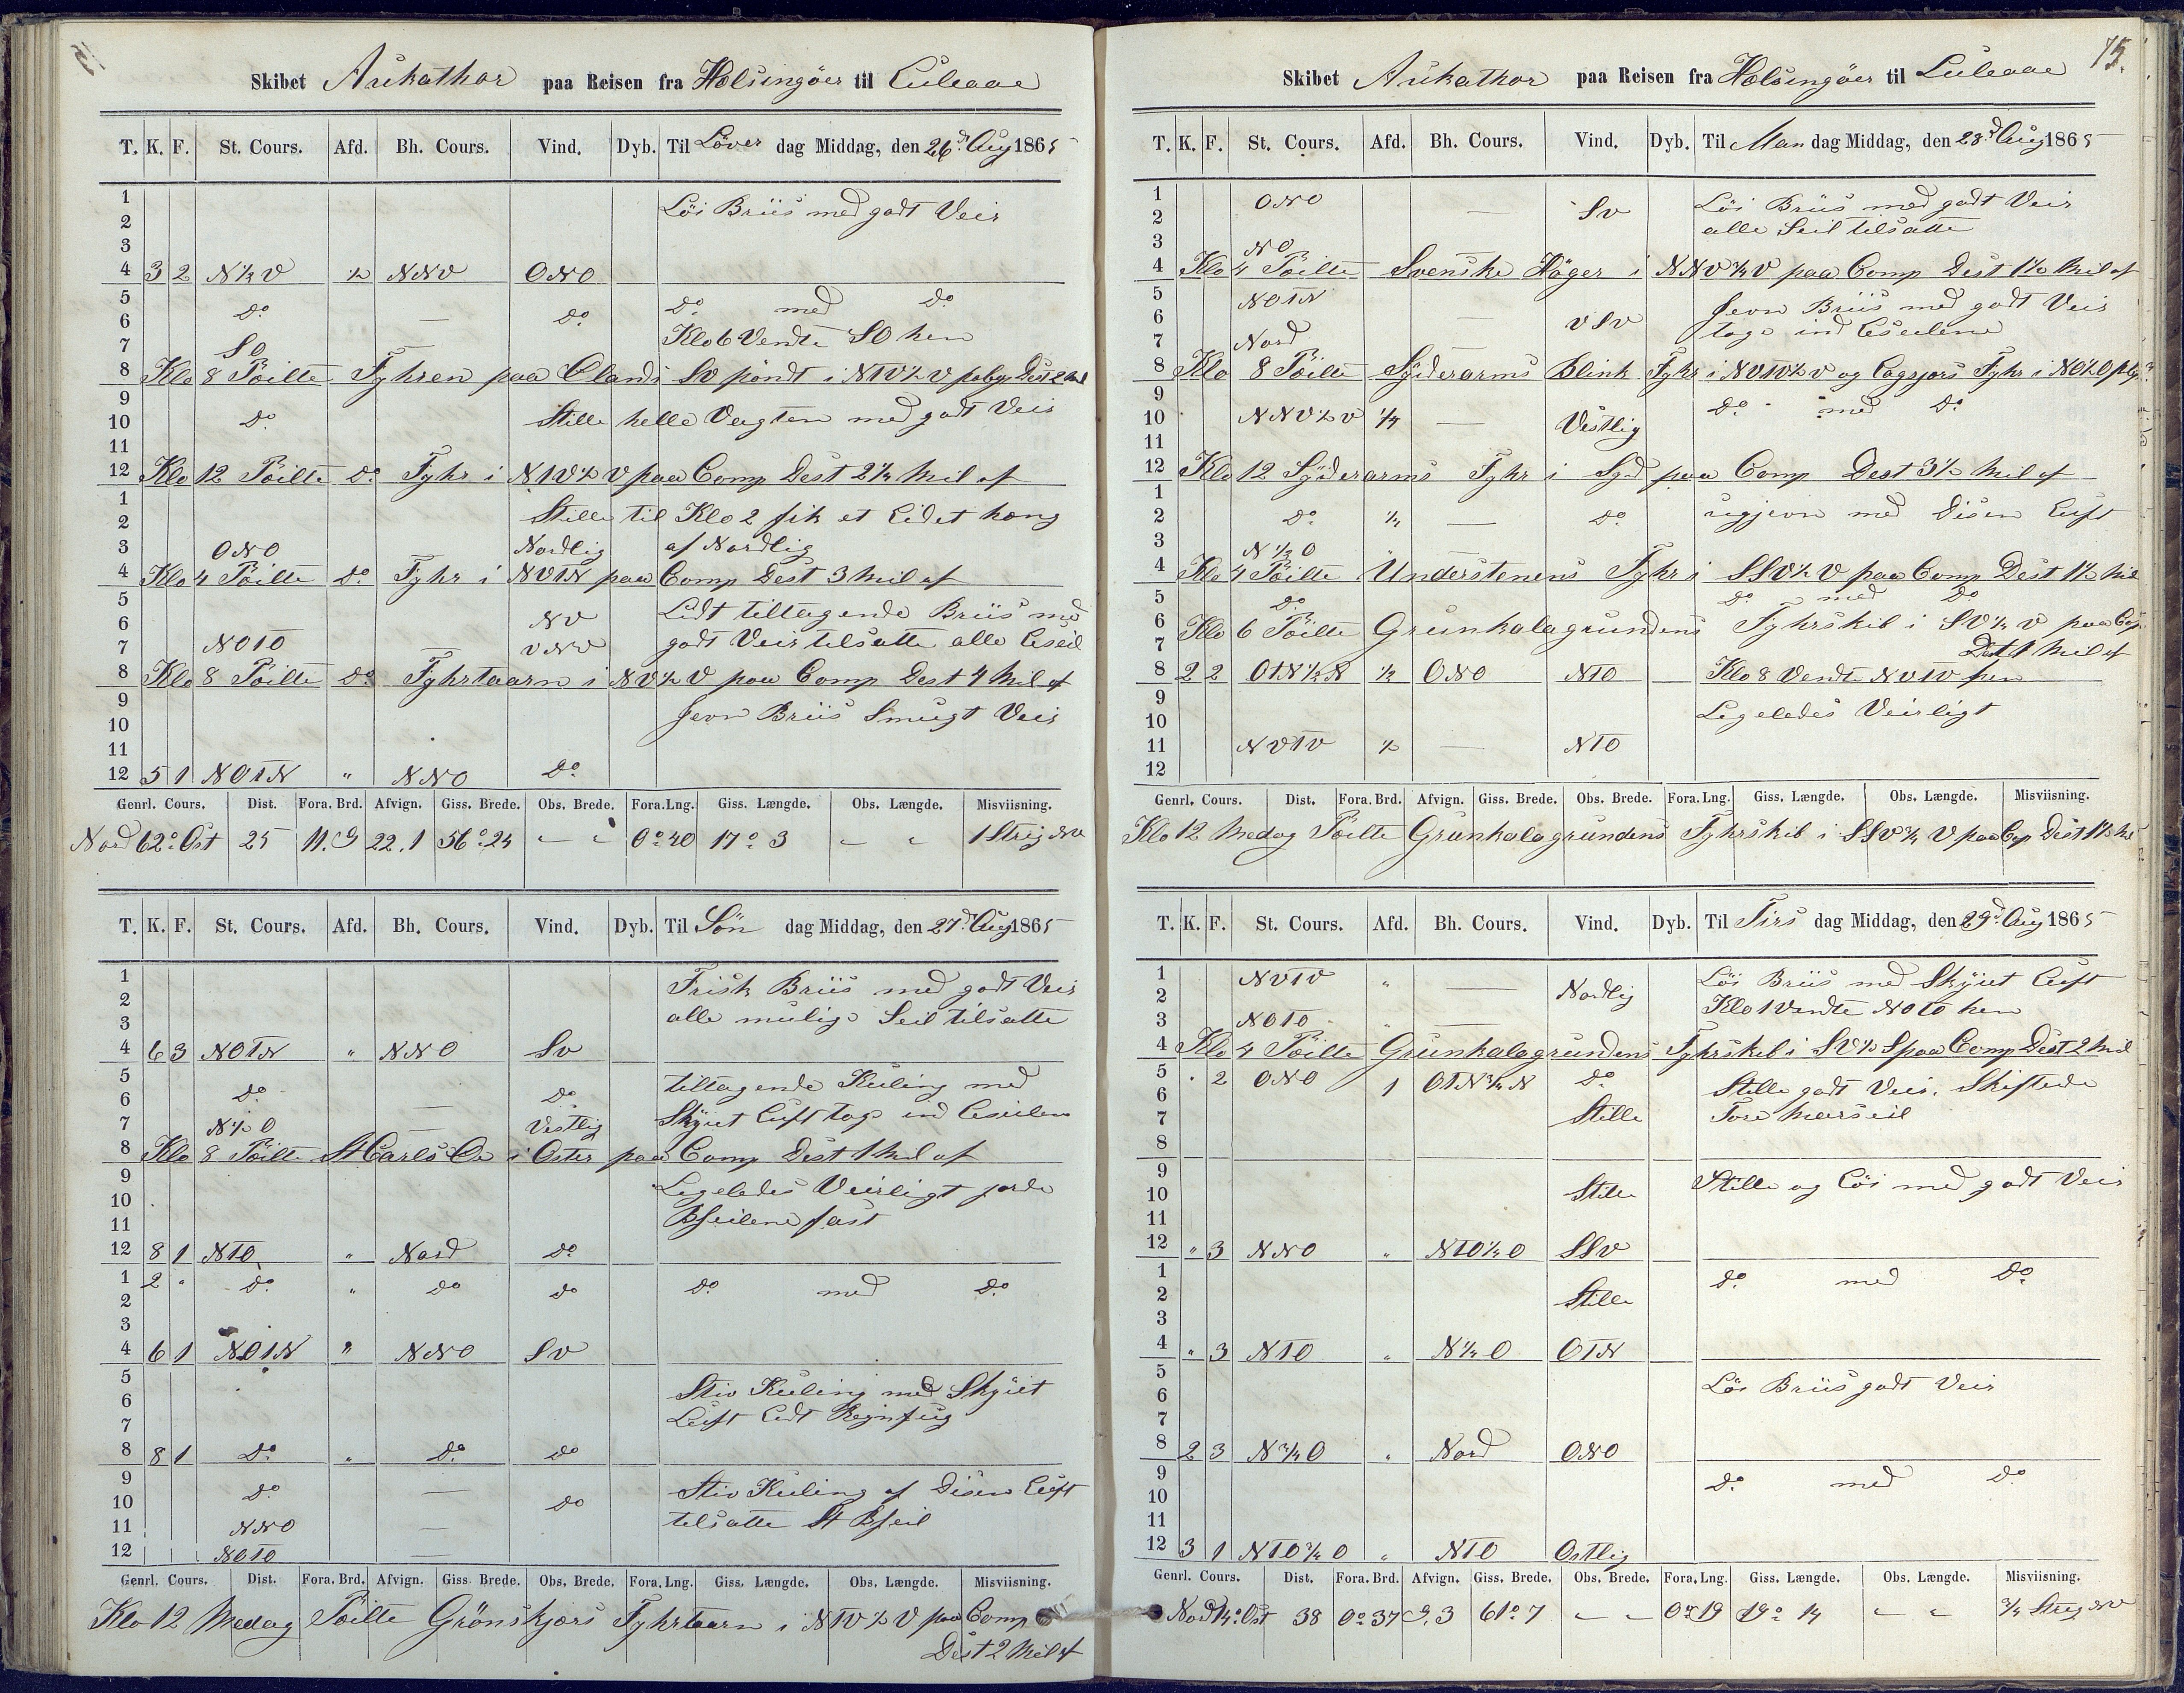 Skibet Arukathor paa Reisen fra Helsingöer til Luleaae
T. K. F. St. Cours. Afd. Bh. Cours. Vind. Dyb. Til Löver dag Middag, den 26d Aug 1865
1 Löi Briis med godt Veir
2
3
4 3 2 N½V ½ NNV ONO
5 do — do do med do
6 Klo 6 Vendte SO hen
7 SO —
8 Klo 8 Pöilte Fyhren paa Olands SV pöndt i N1V½V
9
10 do Stille helle Vagten med godt Veir
11
12 Klo 12 Pöilte do Fyhr i N1V½V paa Comp Dest 2½ Mil af
1 Stille til Klo 2 fik et Lidet hæng
2
3 ONO — Nordlig af Nordlig
4 Klo 4 Pöilte do Fyhr i NV1N paa Comp Dest 3 Mil af
5 Lidt tiltagende Briis med
6 NV
7 NO1O — VNV godt Veir tilsatte alle Leseil
8 Klo 8 Pöilte do Fyhrtaarn i NV½V paa Comp Dest 4 Mil af
9 Jevn Briis Smugt Veir
10
11
12 5 1 NO1N " NNO do
Genrl. Cours. Dist. Fora. Brd. Afvign. Giss. Brede. Obs. Brede. Fora. Lng. Giss. Længde. Obs. Længde. Misviisning.
Nord 62° Ost 25 11.9 22.1 56°24 - - 0°40 17°3 - - 1 Streg NV
T. K. F. St. Cours. Afd. Bh. Cours. Vind. Dyb. Til Sön dag Middag, den 27d Aug 1865
1 Frisk Briis med godt Veir
2 alle mulige Seil tilsatte
3
4 6 3 NO1N " NNO SV
5 do — do tiltagende Kuling med
6
7 N½O — Vestlig Skyiet Luft tog ind Leseilene
8 Klo 8 Pöilte St Carls Oe i Oster paa Comp Dest 1 Mil af
9 Legeledes Veirligt jorde
10
11 Bseilene fast
12 8 1 N1O " Nord do
1 2 " do " do do do med do
2
3
4 6 1 NO1N " NNO SV
5 Stiv Kuling med Skyiet
6 Luft Lidt Regnfug
7
8 8 1 do " do do
9 do — do Stiv Kuling af Disen Luft
10
11 NNO — tilsatte St Bseil
12 NO1O —
Genrl. Cours. Dist. Fora. Brd. Afvign. Giss. Brede. Obs. Brede. Fora. Lng. Giss. Længde. Obs. Længde. Misviisning.
Klo 12 Medag Pöilte Grönskjærs Fyhrtaarn i N1V½V paa Comp
Dest 2 Mil af
15.
Skibet Arukathor paa Reisen fra Helsingöer til Luleaae
T. K. F. St. Cours. Afd. Bh. Cours. Vind. Dyb. Til Man dag Middag, den 28d Aug 1865
1 ONO — SV Löi Briis med godt Veir
2 alle Seil tilsatte
3 NO
4 Klo 4 Pöilte Svenske Höger i NNV¾V paa Comp Dest 1½ Mil af
5 NO1N — VSV Jevn Briis med godt Veir
6 toge ind Leseilene
7 Nord —
8 Klo 8 Pöilte Syderarms Blink Fyhr i NV1V½V og Fyhr i
9
10 NNV½V ¼ — Vestlig do med do
11
12 Klo 12 Syderarms Fyhr i Syd paa Comp Dest 3½ Mil af
1
2 do ¼ — do med Disen Luft
3 N½O —
4 Klo 4 Pöilte Understenens Fyhr i SSV½V paa Comp Dest 1½ Mil
5 do do med do
6 Klo 6 Pöilte Grunkalagrundens Fyhrskib i SV½V paa Comp
7 Dest 1 Mil af
8 2 2 O1N½N ½ ONO N1O Klo 8 Vendte NV1V hen
9 Legeledes Veirligt
10
11 NV1V ½ — N1O
12
Genrl. Cours. Dist. Fora. Brd. Afvign. Giss. Brede. Obs. Brede. Fora. Lng. Giss. Længde. Obs. Længde. Misviisning.
Klo 12 Medag Pöilte Grunkalagrundens Fyhrskib i SSV¾V paa Comp Dest 1½ Mil
T. K. F. St. Cours. Afd. Bh. Cours. Vind. Dyb. Til Tirs dag Middag, den 29d Aug 1865
1 NV1V " — Nordlig Löi Briis med Skyiet Luft
2 Klo 1 Vendte NO1O hen
3 NO1O " —
4 Klo 4 Pöilte Grunkalagrundens Fyhrskib i SV½S paa Comp Dest 2 Mil
5 " 2 ONO 1 O1N¾N do Stille godt Veir. Skiftede
6
7 Stille Fore Merseil
8
9 Stille og Löi med godt Veir
10 Stille
11
12 " 3 NNO " N1O¼O SSV
1 do med do
2 Stille
3
4 " 3 N1O " N¼O O1N
5 Löi Briis godt Veir
6
7
8 2 3 N¾O " Nord ONO
9 do med do
10
11
12 3 1 N1O¾O " N1O Ostlig
Genrl. Cours. Dist. Fora. Brd. Afvign. Giss. Brede. Obs. Brede. Fora. Lng. Giss. Længde. Obs. Længde. Misviisning.
Nord 14° Ost 38 0°37 9.3 61°7 - - 0°19 19°14 - - ¾ Streg NV